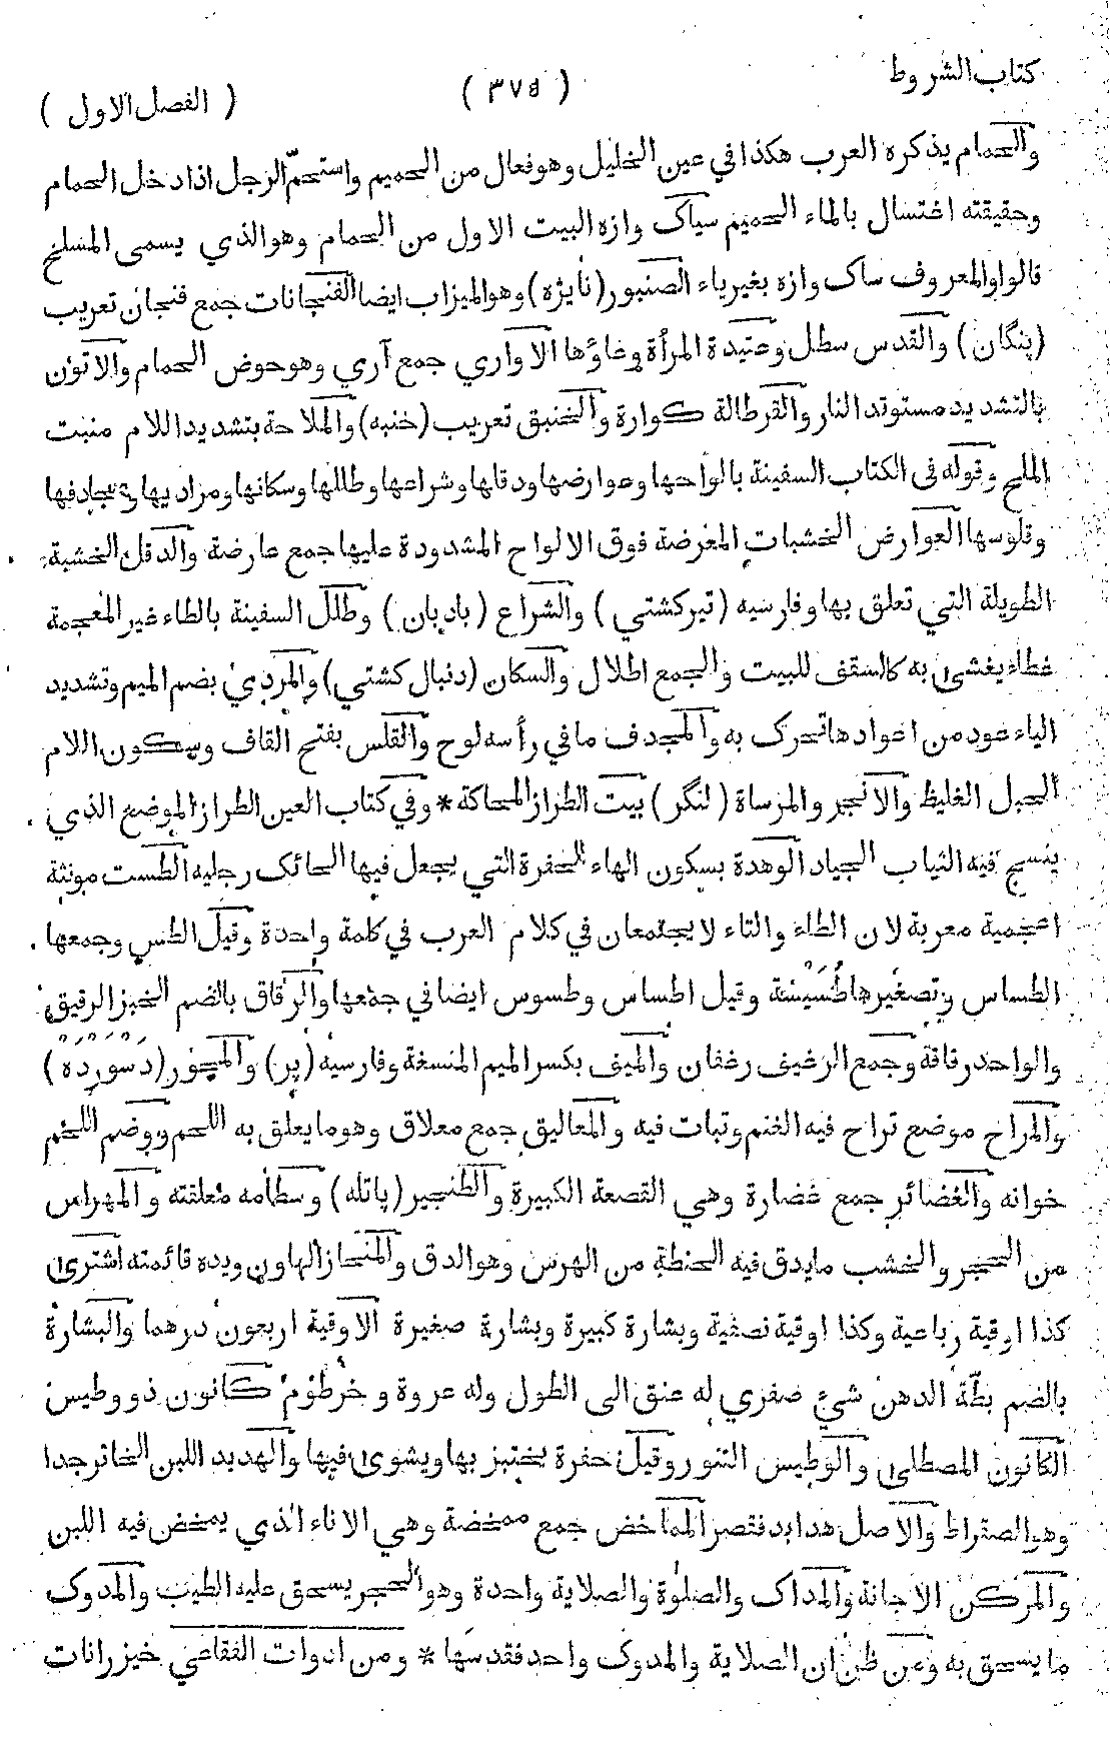 كتاب الشروط
( ٣٧٥ )
( الفصل الاول )
والحمام يذكره العرب هكذا في عين الخليل وهو فعال من الحميم واستحمّ الرجل اذا دخل الحمام
وحقيقته اغتسال بالماء الحميم سياک وازه البيت الاول من الحمام وهو الذي يسمى المسلخ
قالوا والمعروف ساک وازه بغير ياء الصنبور (نايژه) وهو الميزاب ايضا الفنجانات جمع فنجان تعريب
(پنگان) والقدس سطل وعتيدة المرأة وعاؤها الاواري جمع آري وهو حوض الحمام والاتون
بالتشديد مستوقد النار والقرطالة كوارة والخنبق تعريب (خنبه) والملاحة بتشديد اللام منبت
الملح وقوله في الكتاب السفينة بالواحها وعوارضها ودقلها وشراعها وطللها وسكانها ومراديها ومجادفها
وقلوسها العوارض الخشبات المعرضة فوق الالواح المشدودة عليها جمع عارضة والدقل الخشبة
الطويلة التي تعلق بها وفارسيه (تيركشتي) والشراع (بادبان) وطلل السفينة بالطاء غير المعجمة
غطاء يغشى به كالسقف للبيت والجمع اطلال والسكان (دنبال كشتي) والمردي بضم الميم وتشديد
الياء عود من اعوادها تحرك به والمجدف ما في رأسه لوح والقلس بفتح القاف وسكون اللام
الحبل الغليظ والانجر والمرساة (لنگر) بيت الطراز المحاكة * وفي كتاب العين الطراز الموضع الذي
ينسج فيه الثياب الجياد الوهدة بسكون الهاء الحفرة التي يجعل فيها الحائک رجليه الطست مونثة
اعجمية معربة لان الطاء والتاء لا يجتمعان في كلام العرب في كلمة واحدة وقيل الطس وجمعها
الطساس وتصغيرها طُسَيْسَة وقيل اطساس وطسوس ايضا في جمعها والرقاق بالضم الخبز الرقيق
والواحد رقاقة وجمع الرغيف رغفان والميف بكسر الميم المنسغة وفارسيه (پر) والمحور (دَسْوَرْدَهْ)
والمراح موضع تراح فيه الغنم وتبات فيه والمعاليق جمع معلاق وهو ما يعلق به اللحم ووضم اللحم
خوانه والغضائر جمع غضارة وهي القصعة الكبيرة والطنجير (پاتله) وسطامه مغلقته والمهراس
من الحجر والخشب ما يدق فيه الحنطة من الهرس وهو الدق والمنحاز الهاون ويده قائمته اشترى
كذا اوقية رباعية وكذا اوقية نصفية وبشارة كبيرة وبشارة صغيرة الاوقية اربعون درهما والبشارة
بالضم بطّة الدهن شيء صفري له عنق الى الطول وله عروة وخرطوم كانون ذو وطيس
الكانون المصطلى والوطيس التنور وقيل حفرة يختبز بها ويشوى فيها والهدبد اللبن الخاثر جدا
وهو الصقراط والاصل هدابد فقصر المماخض جمع ممخضة وهي الاناء الذي يمخض فيه اللبن
والمركن الاجانة والمداک والصلوة والصلاية واحدة وهو الحجر يسحق عليه الطيب والمدوک
ما يسحق به ومن ظن ان الصلاية والمدوک واحد فقد سها * ومن ادوات الفقاعي خيزرانات